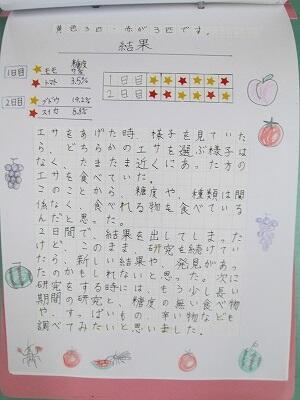 黄色3匹・赤が3匹です。
結果
糖度
1日目 ★モモ 9%
★トマト 3.5%
1日目 ★★★★★★
2日目 ★★★★★★
2日目 ★ブドウ 19.2%
★スイカ 8.8%
エサをあげた時、様子を見ていた
ら、どちらかのエサを選ぶ様子は
なく、たまたま近くにあった方の
エサを食べていた。
このことから、糖度や、種類は関
係なく、食べれる物を食べている
んだと思った。
2日間で、結果を出してしまった
けど、このまま、研究を続けてい
たら、新しい結果や、発見があっ
たのかもしれないと思った。次に
研究をする時には、もう少し長い
期間の研究と、糖度の無い食べ物
や、すっぱいもの、辛い物なども
調べてみたいと思いました。